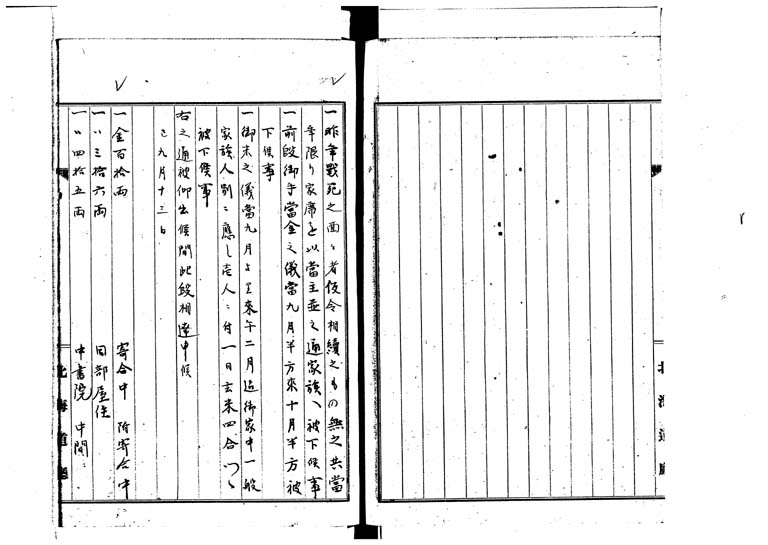 一昨年戦死之面〻者仮令相続之もの無之共當
年限り家席を以當主並之通家族へ被下候事
一前段御手當金之儀當九月半方來十月半方被
下候事
一御米之儀當九月より來午二月迄御家中一般
家族人別ニ應し壱人ニ付一日玄米四合つゝ
被下候事
右之通被仰出候間此段相達申候
巳九月十三日
一金百拾両 寄合中 附寄合中
一〃三拾六両 同部屋住
一〃四拾五両 中書院 中間
北海道廳
北海道廳